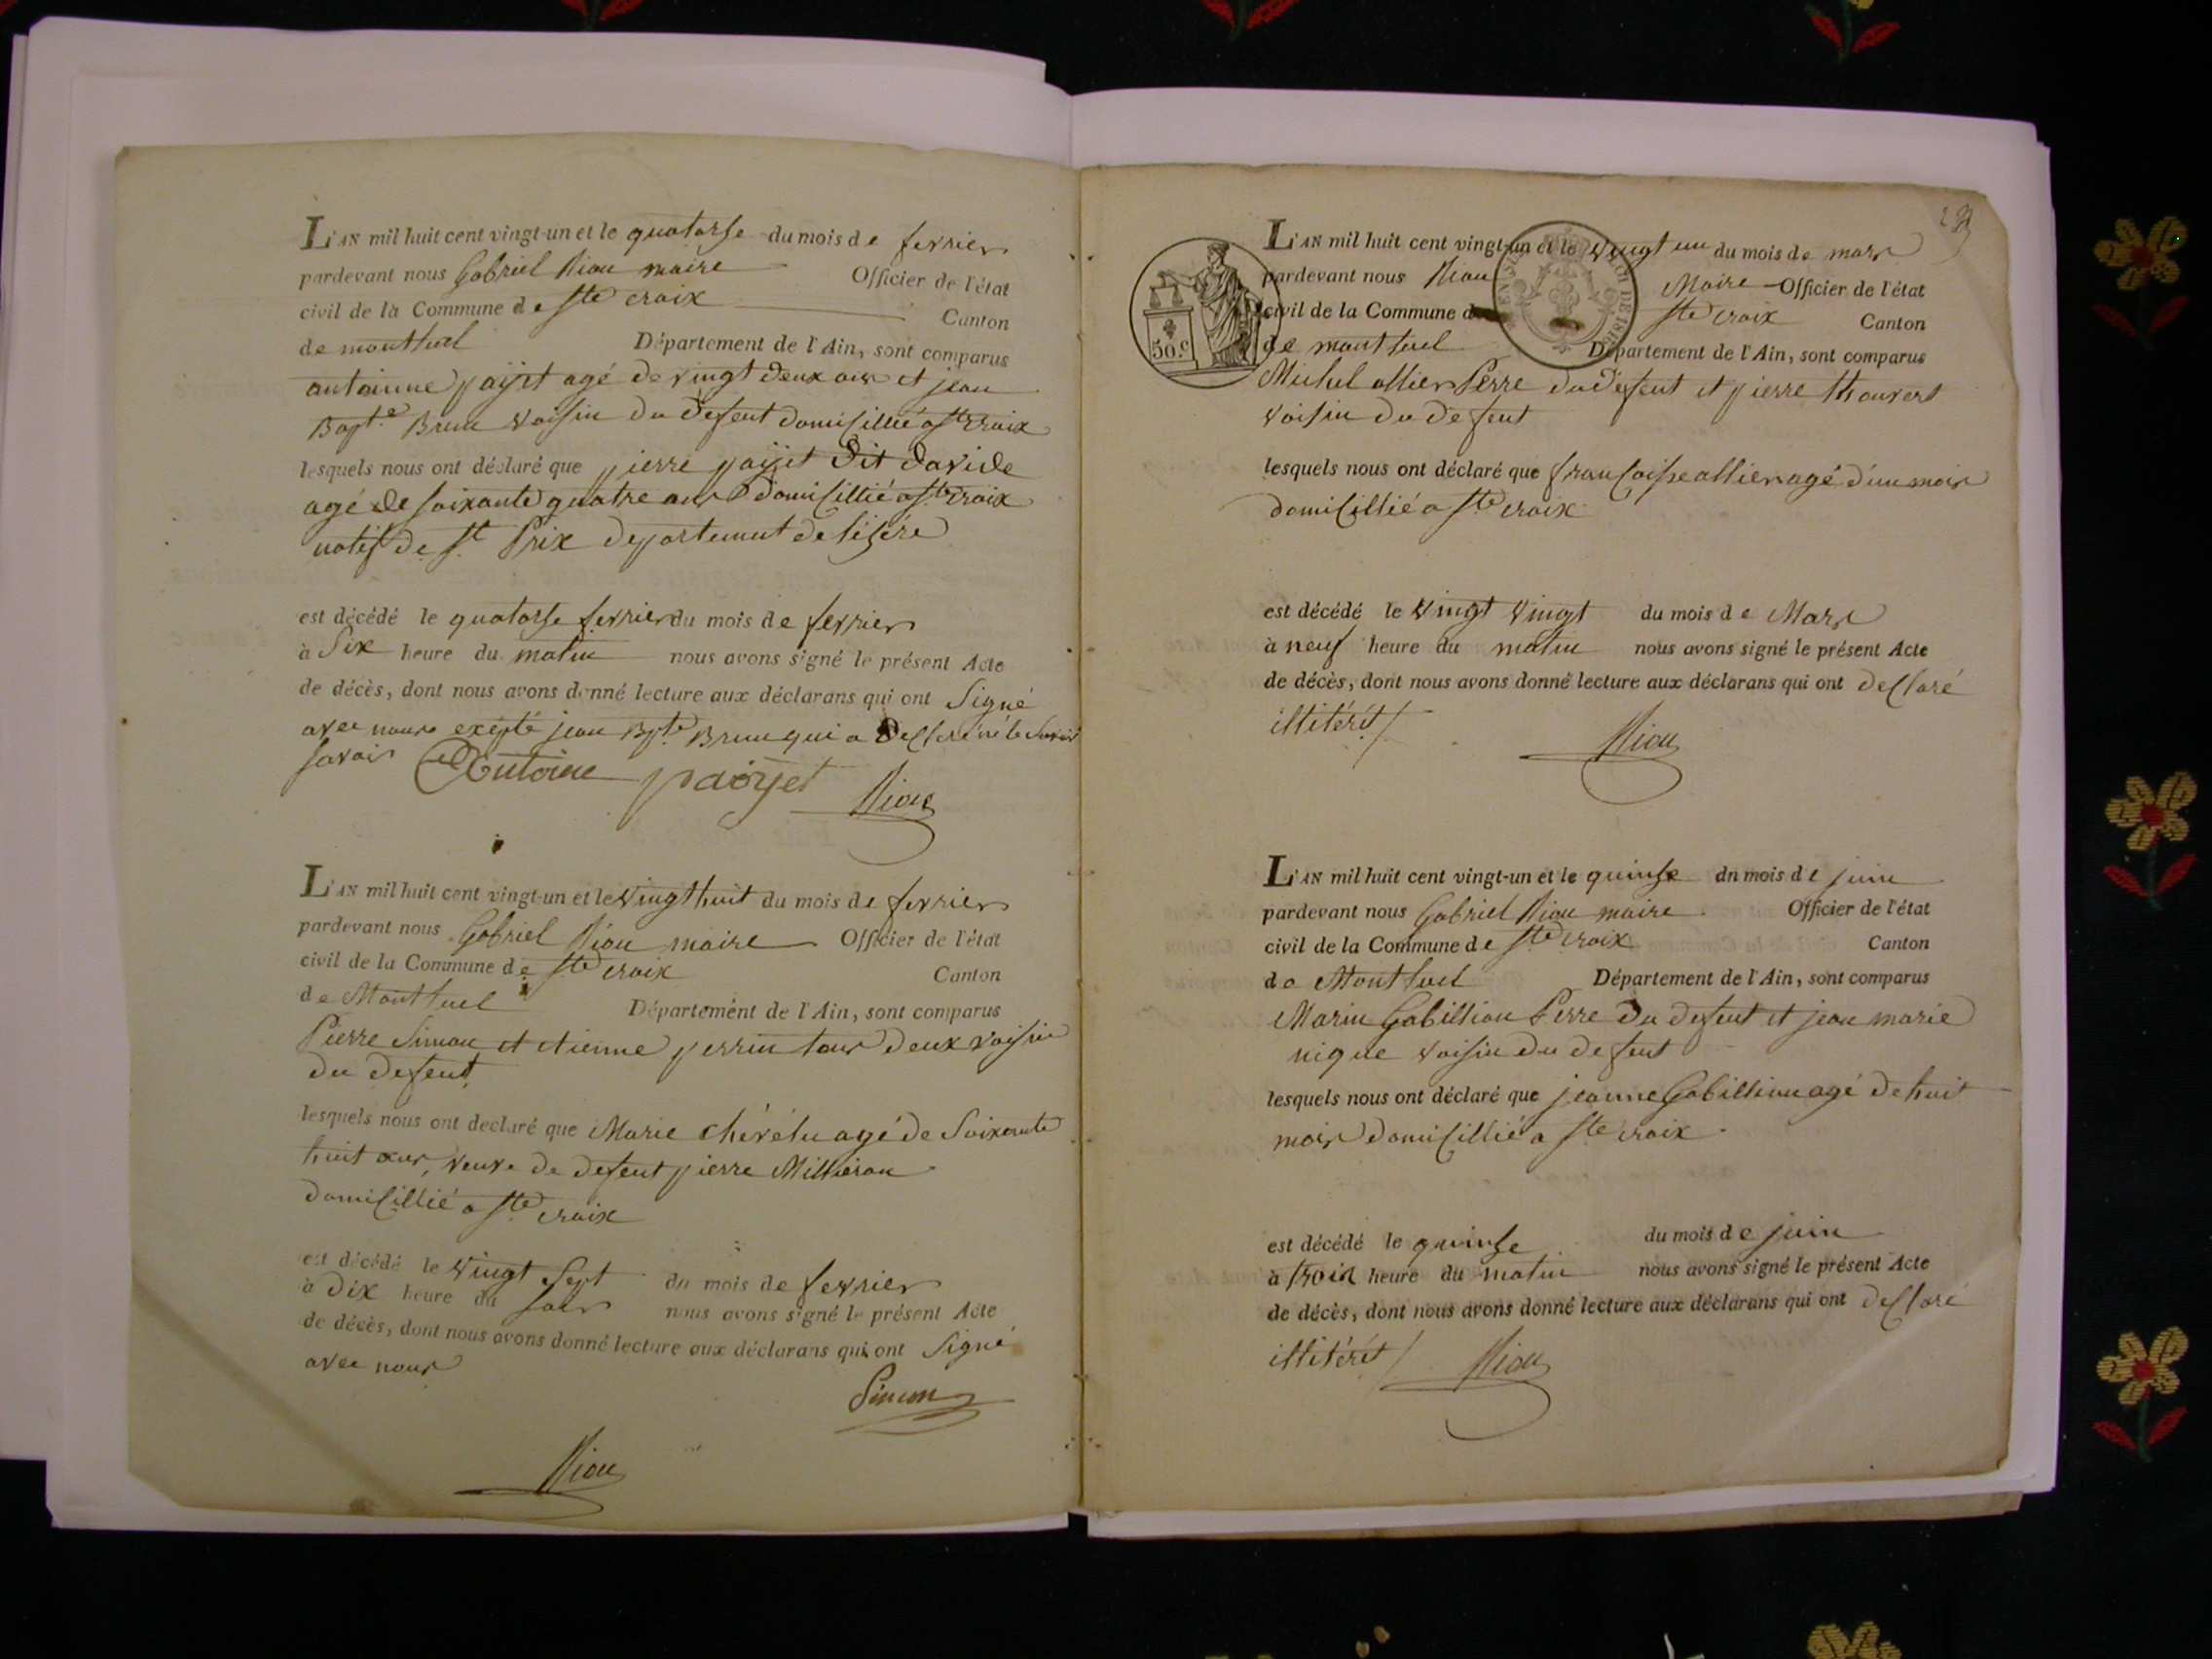 L'AN mil huit cent vingt-un et le quatorse du mois de fevrier
pardevant nous Gabriel Riou maire Officier de l'état
civil de la Commune de Ste croix Canton
de montluel Département de l'Ain, sont comparus
antoinne payet agé de vingt deux ans et jean
Bapte. Brun voisin du defeut domisillié a ste croix
lesquels nous ont déclaré que pierre payet dit davide
agé de soixante quatre ans domisillié a ste croix
natif de st Prix departemut de lisére
est décédé le quatorse fevrier du mois de fevrier
à Six heure du matin nous avons signé le présent Acte
de décès, dont nous avons donné lecture aux déclarans qui ont Signé
avec nous exépté jean Bpte Brun qui a declaré né le
savoir Antoine payet Riou
L'AN mil huit cent vingt-un et le vingt huit du mois de fevrier
pardevant nous Gabriel Riou maire Officier de l'état
civil de la Commune de Ste croix Canton
de Montluel Département de l'Ain, sont comparus
Pierre Simon et etienne perrin tous deux voisin
du defeut
lesquels nous ont declaré que Marie agé de Soixante
huit ans, veuve de defeut pierre Millieron
domisillié a ste croix
est décédé le vingt Sept du mois de fevrier
à Dix heure du soir nous avons signé le présent Acte
de décès, dont nous avons donné lecture aux déclarans qui ont Signé
avec nous
Simon
Riou
L'AN mil huit cent vingt-un et le vingt un du mois de mars
pardevant nous Riou Maire Officier de l'état
civil de la Commune de Ste croix Canton
de montluel Département de l'Ain, sont comparus
50.c
Michel allier Perre du defeut et pierre Thouvert
voisin du defeut
lesquels nous ont déclaré que francoisse allier agé d'un mois
domisillié a ste croix
est décédé le vingt vingt du mois de Mars
à neuf heure du matin nous avons signé le présent Acte
de décès, dont nous avons donné lecture aux déclarans qui ont declaré
illitérét /
Riou
L'AN mil huit cent vingt-un et le quinse dn mois de juin
pardevant nous Gabriel Riou maire Officier de l'état
civil de la Commune de Ste croix Canton
de Montluel Département de l'Ain, sont comparus
Marin Gabillion Perre du defeut et jean marie
nique voisin du defeut
lesquels nous ont déclaré que jeanne Gabillion agé de huit
mois domisillié a ste croix
est décédé le quinse du mois de juin
à trois heure du matin nous avons signé le présent Acte
de décès, dont nous avons donné lecture aux déclarans qui ont declaré
illitérét / Riou